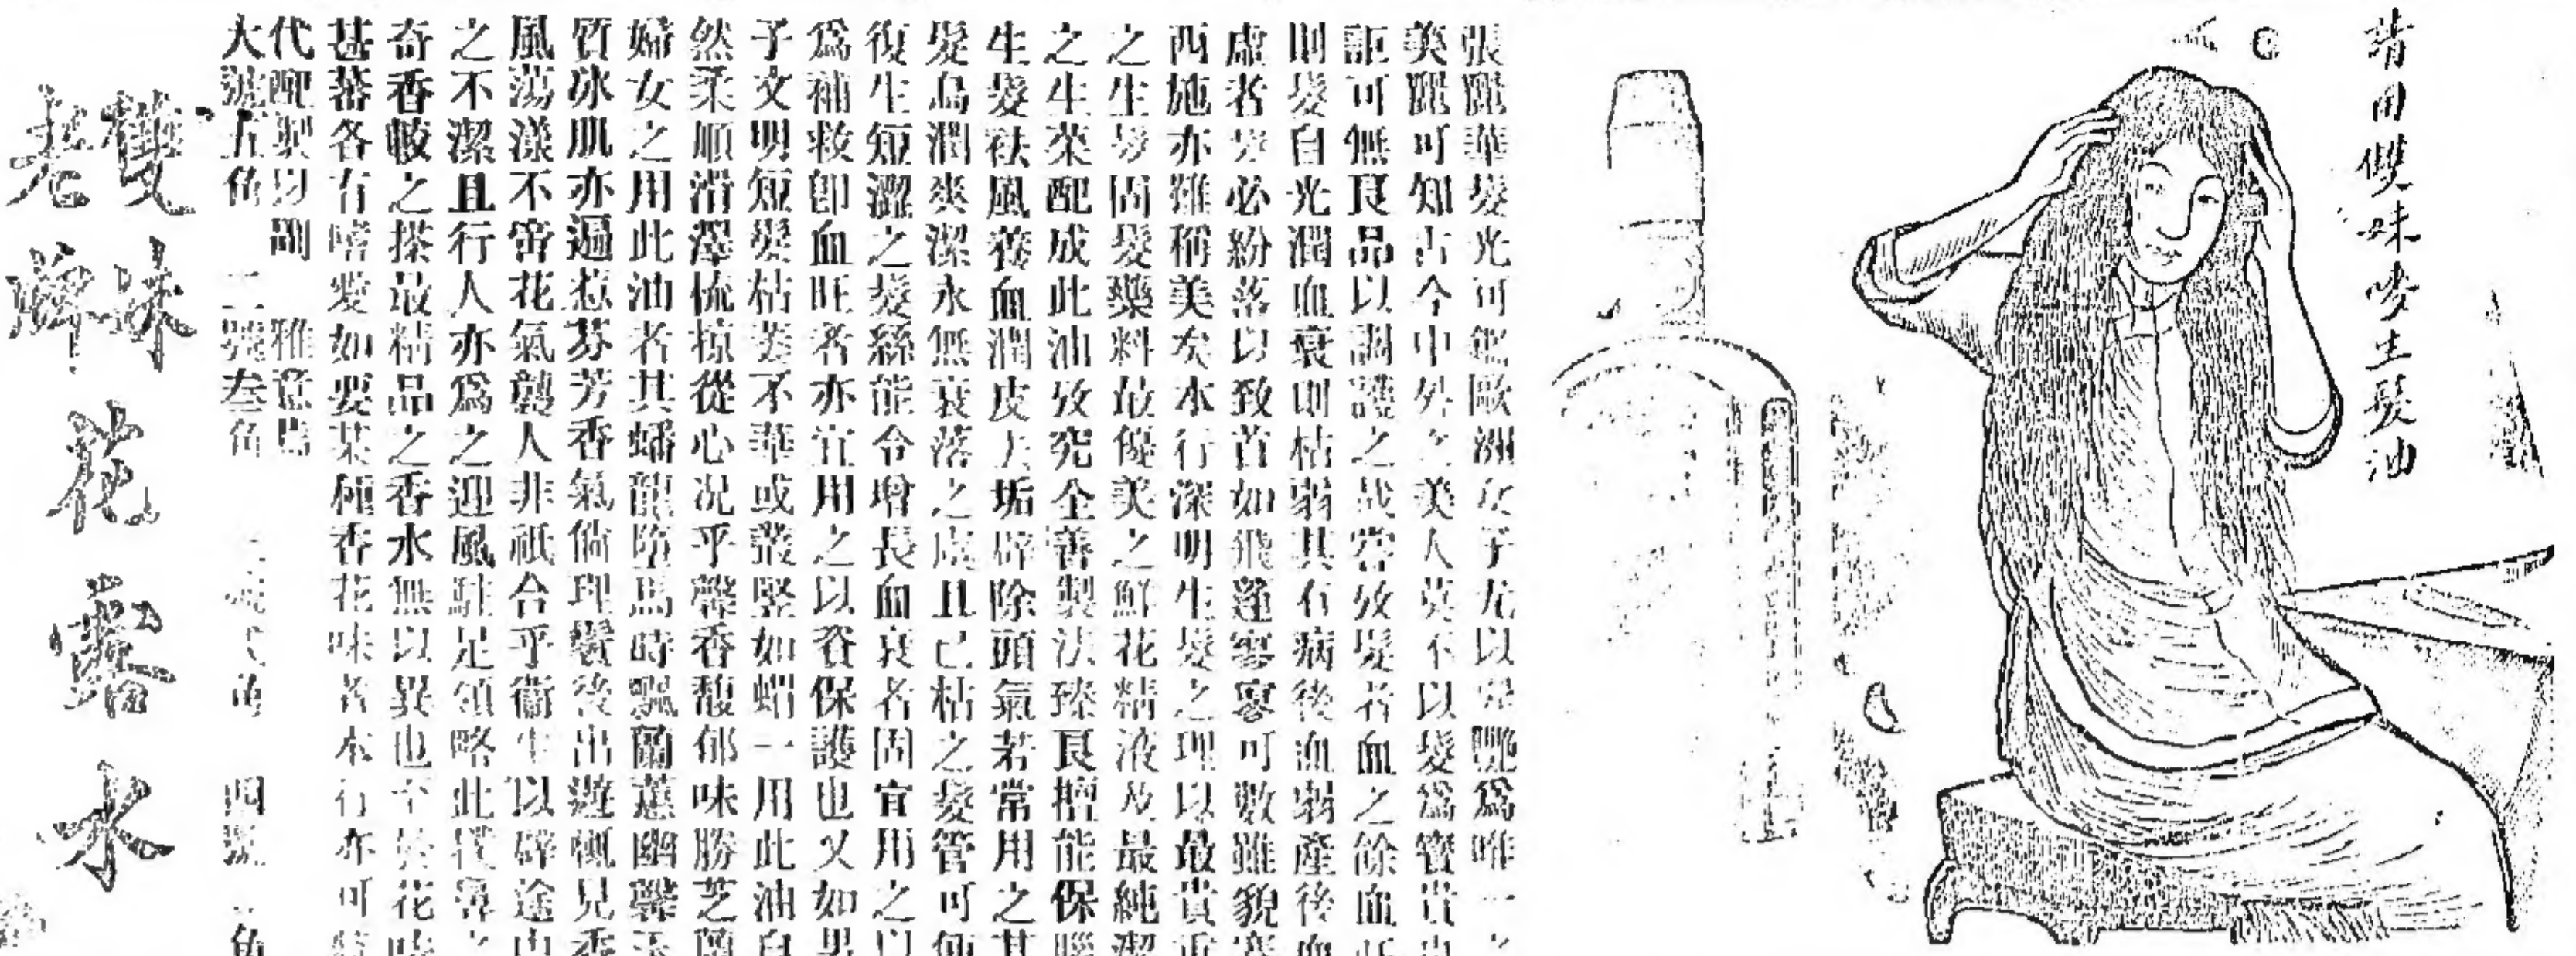 請用雙妹嘜生髮油
張麗華髮光可鑑歐洲女子尤以髮艷爲唯一之
美麗可知古今中外之美人莫不以髮爲寶貴也
詎可無良品以調護之哉嘗攷髮者血之餘血旺
則髮自光潤血衰則枯弱其有病後血弱產後血
虛者髮必紛落以致首如飛蓬寥寥可數雖貌賽
西施亦難稱美矣本行深明生髮之理以最貴重
之生髮固髮藥料最優美之鮮花精液及最純潔
之生菜配成此油攷究全善製法臻良擅能保腦
生髮祛風養血潤皮去垢辟除頭氣若常用之其
髮烏潤爽潔永無衰落之虞且已枯之髮管可使
復生短澀之髮絲能令增長血衰者固宜用之以
爲補救卽血旺者亦宜用之以資保護也又如男
子文明短髮枯萎不華或叢竪如蝟一用此油自
然柔順滑澤梳掠從心况乎馨香馥郁味勝芝蘭
婦女之用此油者其蟠龍墮馬時飄蘭蕙幽馨玉
質冰肌亦遍惹芬芳香氣倘理鬢後出遊輒見香
風蕩漾不啻花氣襲人非祇合乎衞生以辟途中
之不潔且行人亦爲之迎風駐足領略此撲鼻之
奇香較之搽最精品之香水無以異也至於花味
甚蕃各有嗜愛如要某種香花味者本行亦可
代配製以副 雅意焉
大號五角 二號叁角 三號弍角 四號 角
雙妹
老牌花露水